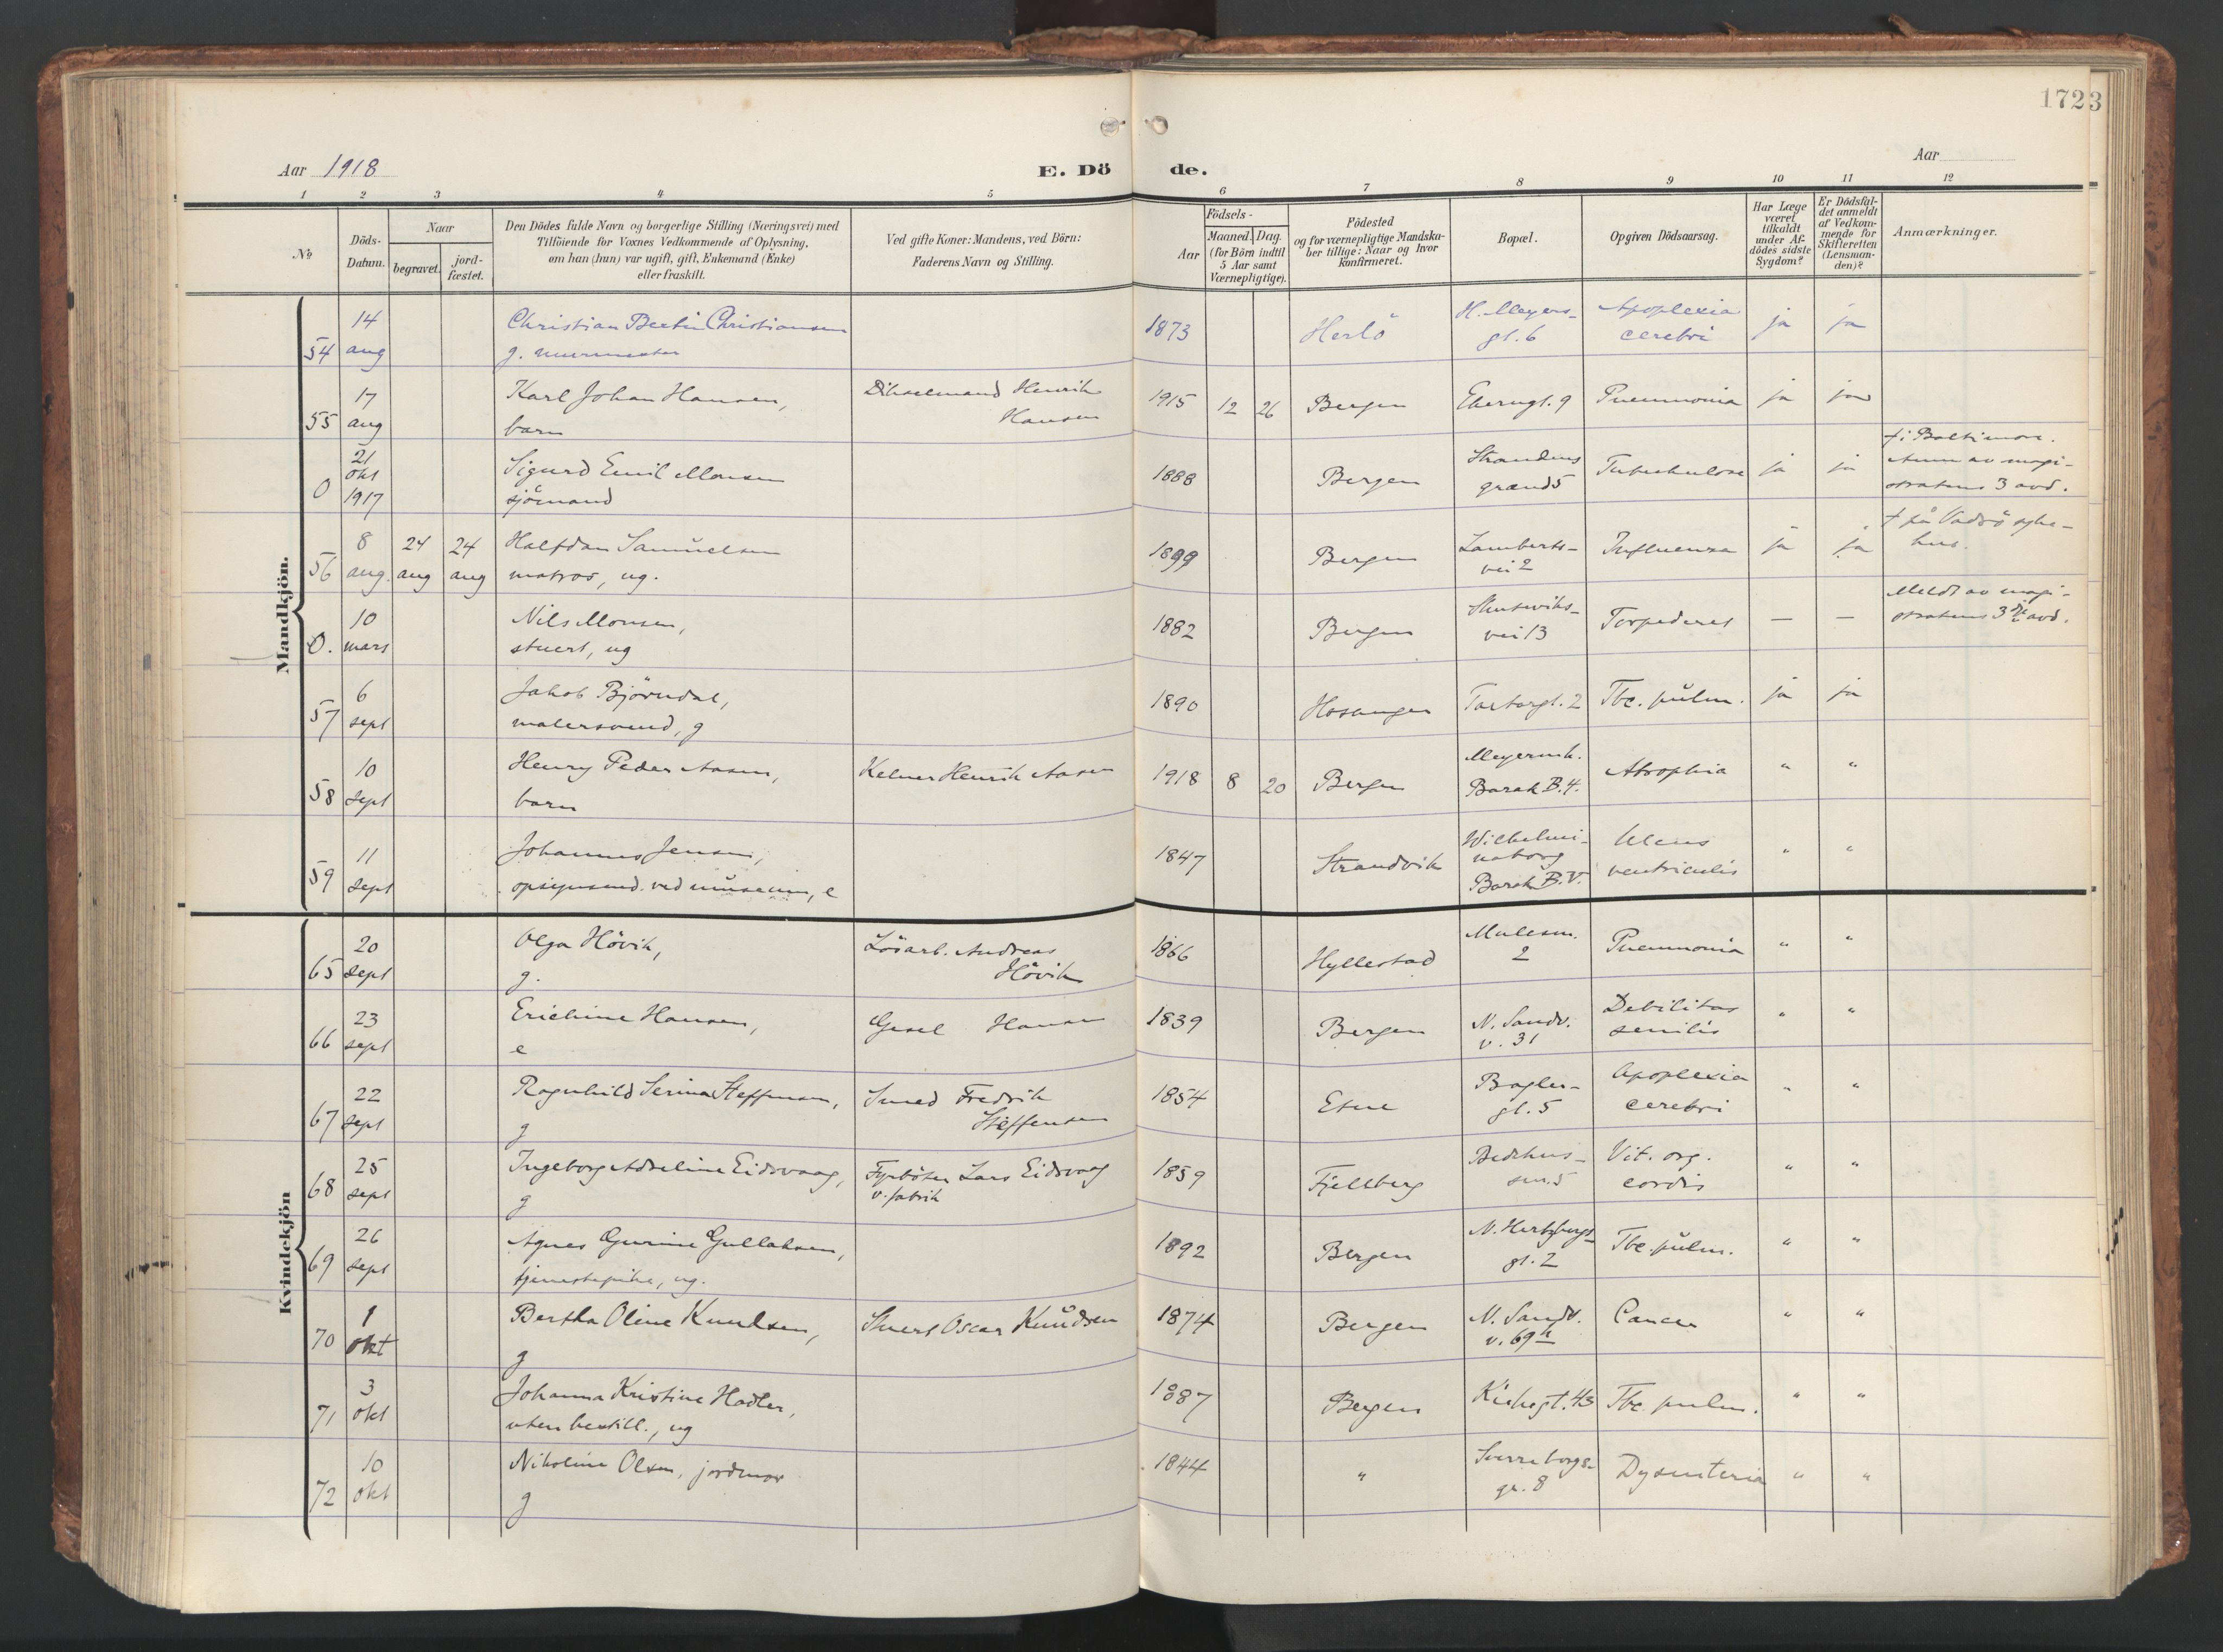 1723
Aar 1918
E. Dö de.
Aar
1 2 3 4 5 6 7 8 9 10 11 12
No
Döds-
Datum.
Naar
begravet.
jord-
fæstet.
Den Dödes fulde Navn og borgerlige Stilling (Næringsvei) med
Tilföiende for Voxnes Vedkommende af Oplysning,
om han (hun) var ugift, gift, Enkemand (Enke)
eller fraskilt.
Ved gifte Koner: Mandens, ved Börn:
Faderens Navn og Stilling.
Födsels-
Aar
Maaned. Dag.
(for Börn indtil
5 Aar samt
Værnepligtige).
Födested
og for værnepligtige Mandska-
ber tillige: Naar og hvor
konfirmeret.
Bopæl.
Opgiven Dödsaarsag.
Har Læge
været
tilkaldt
under Af-
dödes sidste
Sygdom?
Er Dödsfal-
det anmeldt
af Vedkom-
mende for
Skifteretten
(Lensman-
den)?
Anmærkninger.
Mandkjön.
54 14 aug
Christian Bertin Christiansen
g. murmester
1873 Herlö
H. Meyers-
gt. 6
Apoplexia
cerebri
ja ja
55 17 aug
Karl Johan Hansen,
barn
Henrik
Hansen
1915 12 26 Bergen
gt. 9
Pneumonia
ja ja
0 21 okt 1917
Sigurd Emil Monsen
sjömand
1888 Bergen
Strandens
grænd 5
Tuberkulose
ja ja
† i Baltimore.
Anm av magi-
stratens 3 avd.
56 8 aug. 24 aug 24 aug
Halfdan Samuelsen
matros, ug.
1899 Bergen
Lamberts-
vei 2
Influenza
ja ja
† på Vadsö syke-
hus.
0. 10 mars
Nils Monsen,
stuert, ug
1882 Bergen
Skuteviks-
vei 13
Torpederet
— —
Meldt av magi-
stratens 3dje avd.
57 6 sept
Jakob Björndal,
malersvend, g
1890 Hosanger
Tartargt. 2
Tbc. pulm.
ja ja
58 10 sept
Henry Peder Aasen,
barn
Kelner Henrik Aasen
1918 8 20 Bergen
Barak B. 4.
Atrophia
" "
59 11 sept
Johannes Jensen,
opsynsmd. ved museum, e
1847 Strandvik
Wilhelmi-
naborg
Barak B. V.
Ulcus
ventriculis
" "
Kvindekjön
65 20 sept
Olga Hövik,
g.
Lösarb. Andreas
Hövik
1866 Hyllestad
Mulesm.
2
Pneumonia
" "
66 23 sept
Erichine Hansen,
e
Hansen
1839 Bergen
N. Sandv.
v. 31
Debilitas
senilis
" "
67 22 sept
Ragnhild Serina Steffensen,
g
Smed Fredrik
Steffensen
1854 Etne
Bagler-
gt. 5
Apoplexia
cerebri
" "
68 25 sept
Ingeborg Adseline Eidsvaag,
g
Fyrböter Lars Eidsvaag
v. fabrik
1859 Fjellberg
Bedehus-
sm. 5
Vit. org.
cordis
" "
69 26 sept
Agnes Gurine Gullaksen,
tjenestepike, ug.
1892 Bergen
N. Hertzbergs-
gt. 2
Tbc. pulm.
" "
70 1 okt
Bertha Oline Knudsen,
g
Stuert Oscar Knudsen
1874 Bergen
N. Sandv.
v. 69a
Cancer
" "
71 3 okt
Johanna Kristine Hadler,
uten bestill., ug
1887 Bergen
Kirkegt. 43
Tbc. pulm.
" "
72 10 okt
Nikoline Olsen, jordmor
g
1844 "
Sverreborgs-
gr. 8
Dysenteria
" "